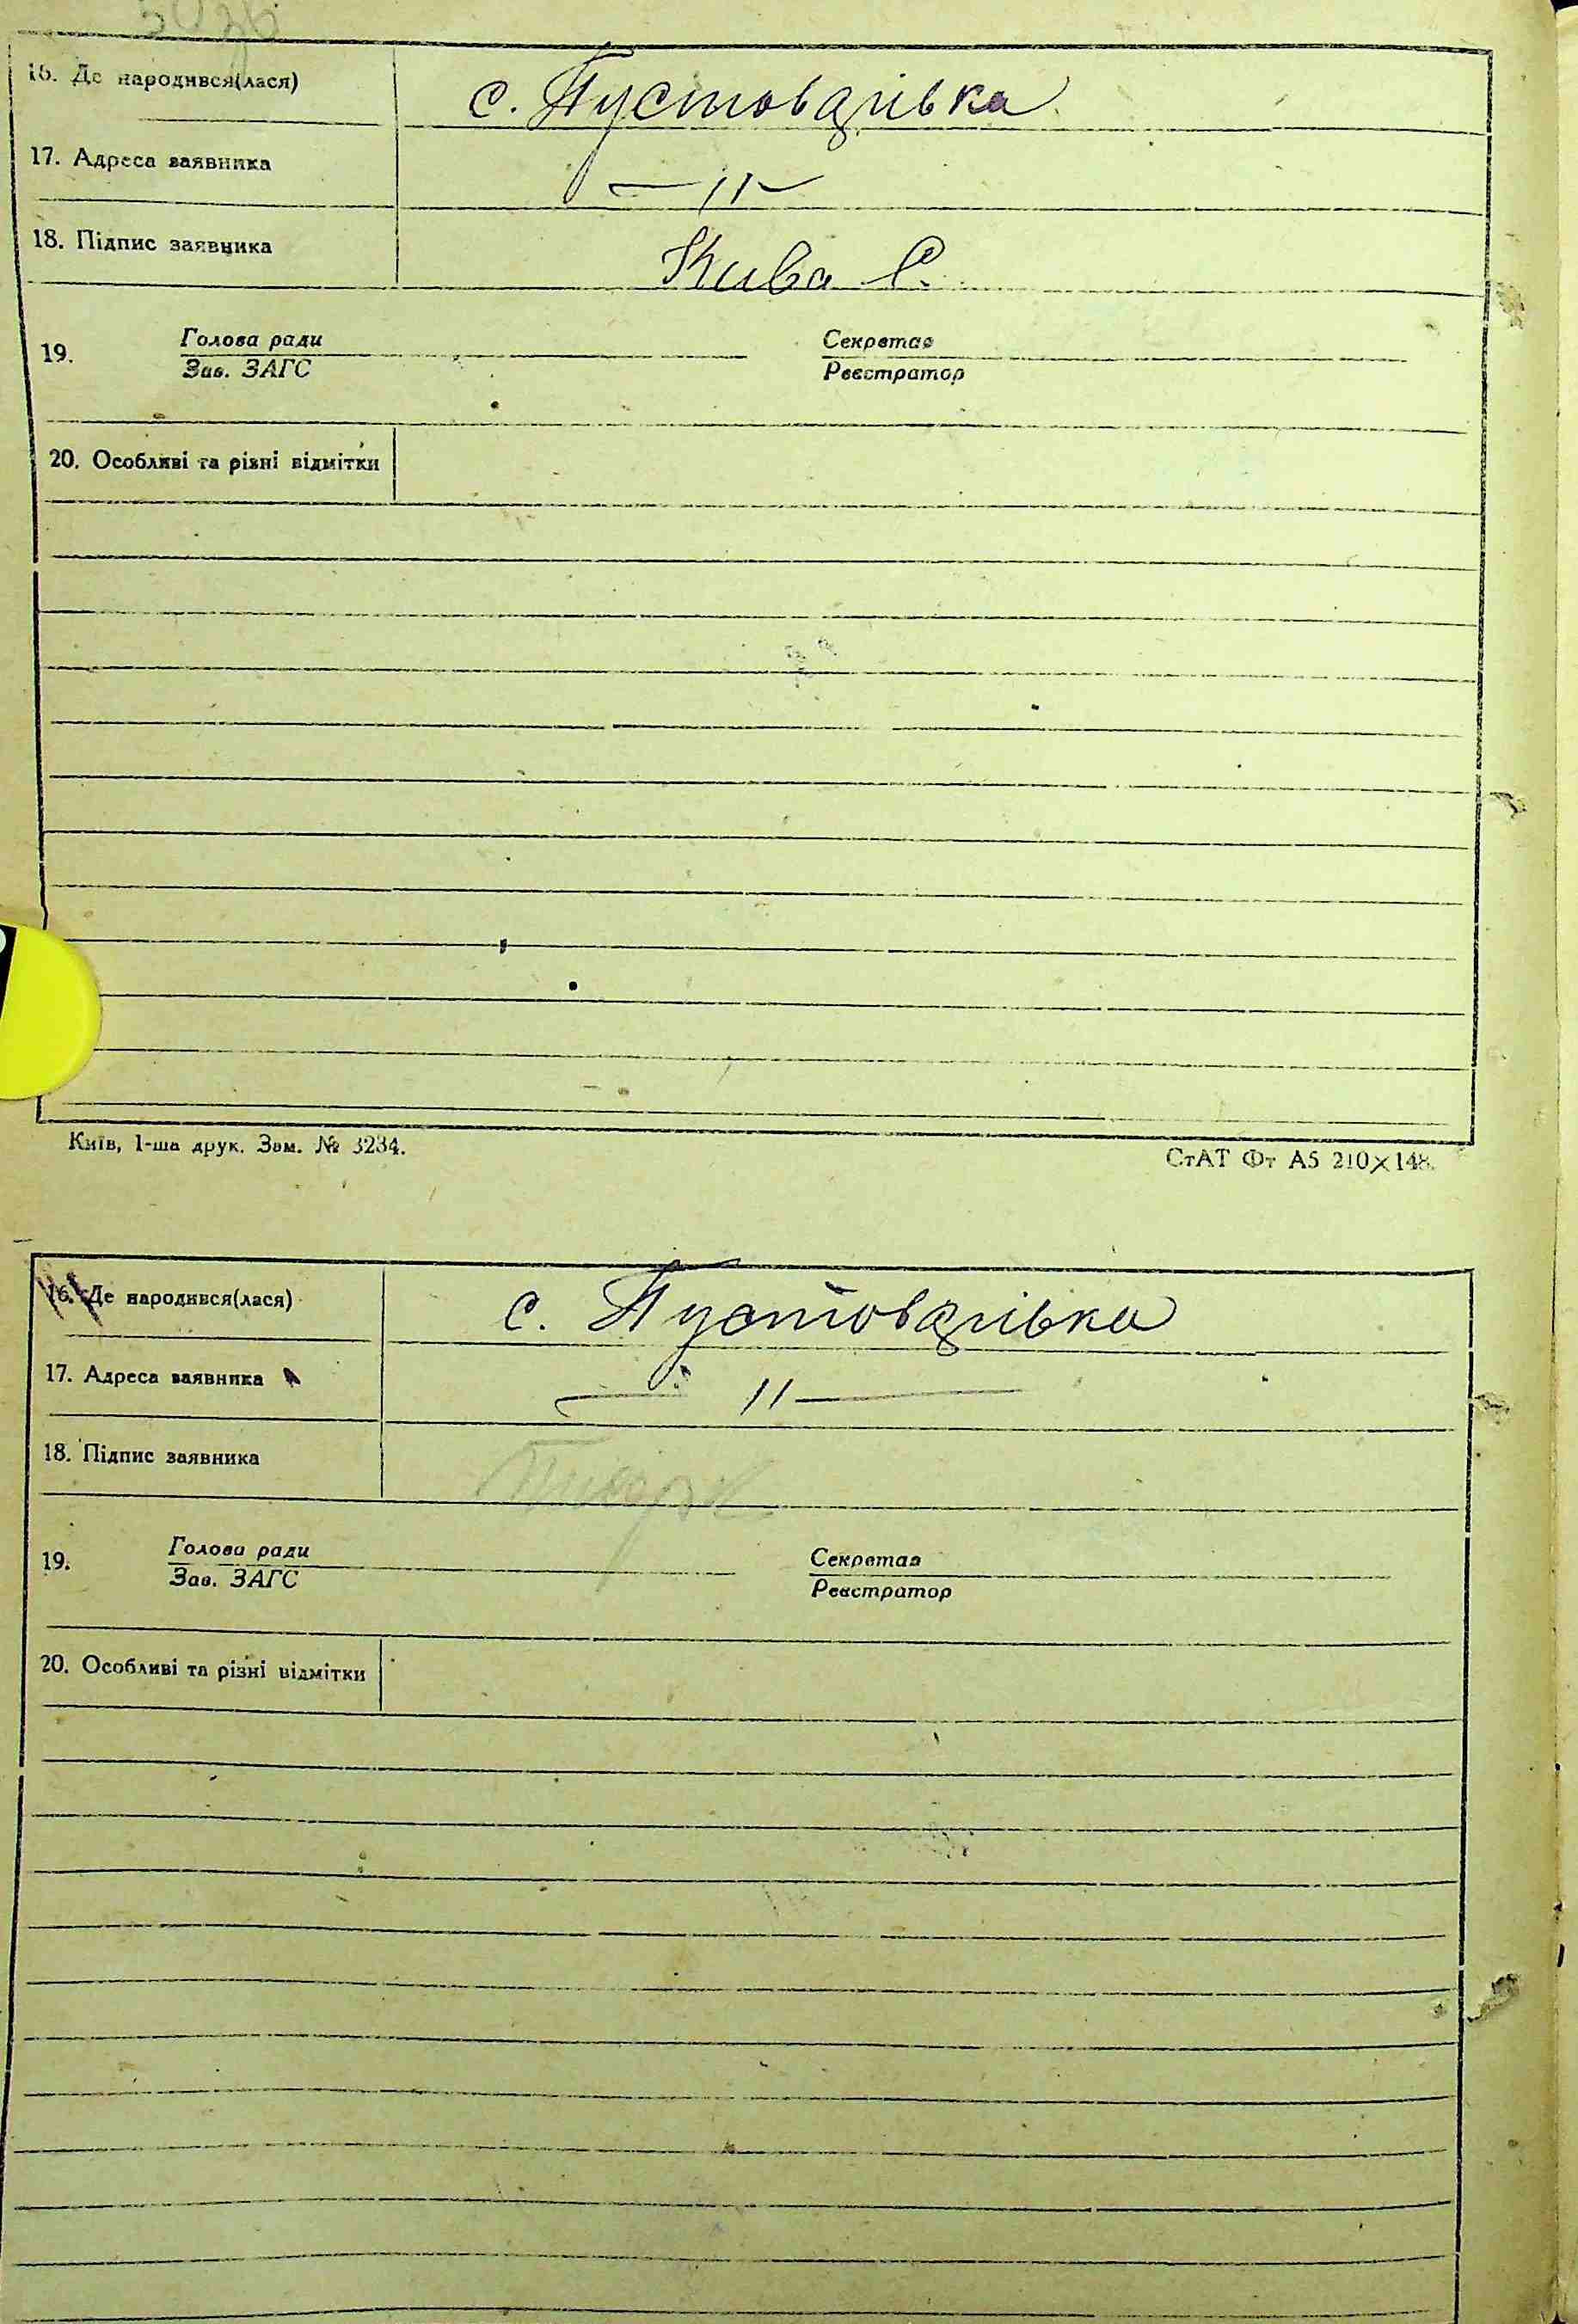 16. Де народився(лася) с. Пустоварівка
17. Адреса заявника — 11 —
18. Підпис заявника Кива С.
19. Голова ради Секретар
Зав. ЗАГС Реєстратор
20. Особливі та різні відмітки
Київ, 1-ша друк. Зам. № 3234. СтАТ Фт А5 210×148.
16. Де народився(лася) с. Пустоварівка
17. Адреса заявника — 11 —
18. Підпис заявника
19. Голова ради Секретар
Зав. ЗАГС Реєстратор
20. Особливі та різні відмітки